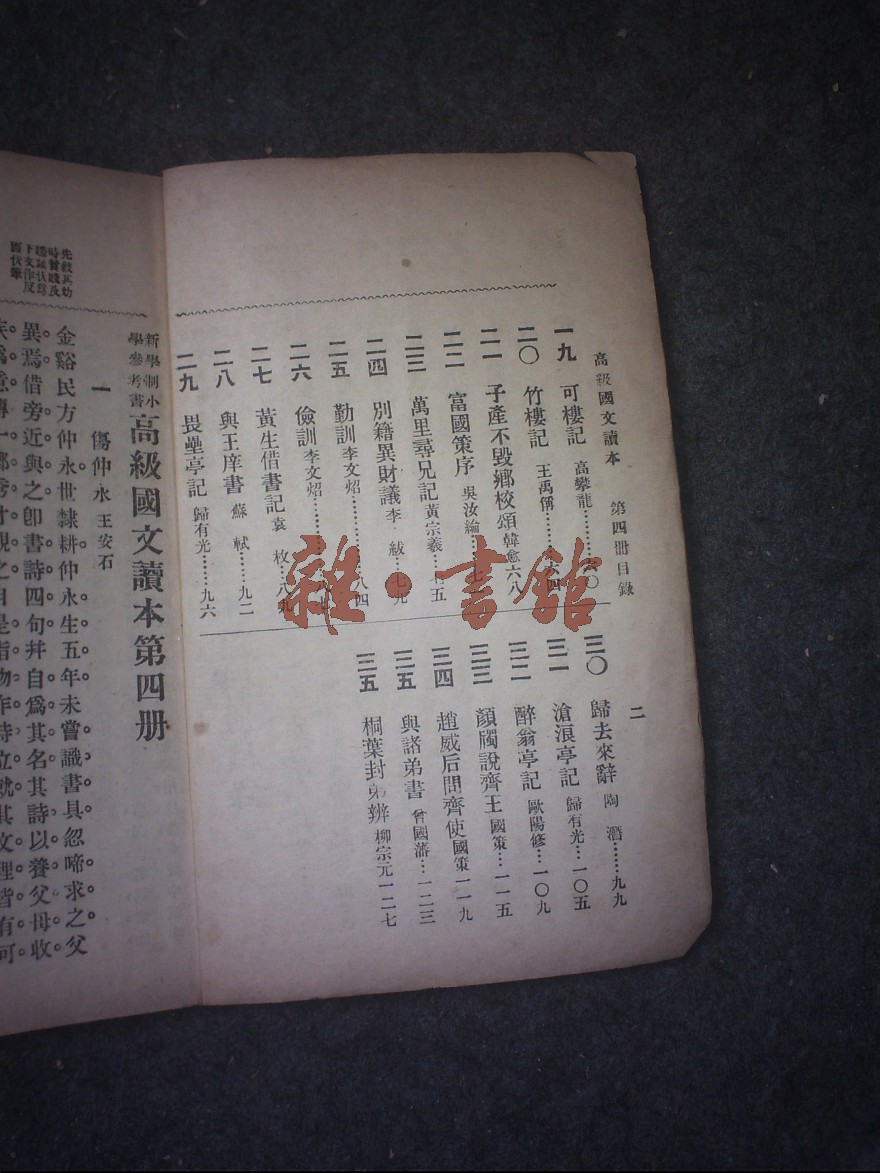 高級國文讀本 第四冊目錄 二
一九 可樓記 高攀龍……〇
二〇 竹樓記 王禹偁……四
二一 子產不毀鄉校頌 韓愈六八
二二 富國策序 吳汝綸…七
二三 萬里尋兄記 黃宗羲…五
二四 別籍異財議 李 紱…七九
二五 勤訓 李文炤……八四
二六 儉訓 李文炤……
二七 黃生借書記 袁 枚…八九
二八 與王庠書 蘇 軾…九二
二九 畏壘亭記 歸有光…九六
三〇 歸去來辭 陶 潛……九九
三一 滄浪亭記 歸有光…一〇五
三二 醉翁亭記 歐陽修…一〇九
三三 顏斶說齊王 國策…一一五
三四 趙威后問齊使 國策一一九
三五 與諸弟書 曾國藩…一二三
三五 桐葉封弟辨 柳宗元一二七
雜·書館
新學制小
學參考書
高級國文讀本第四册
一 傷仲永 王安石
金谿民方仲永。世隸耕。仲永生五年。未嘗識書具。忽啼求之。父
異焉。借旁近與之。卽書詩四句。幷自爲其名。其詩以養父母。收
族爲意。傳一鄉秀才觀之。自是指物作詩立就。其文理皆有可
先敍其幼
下文作反